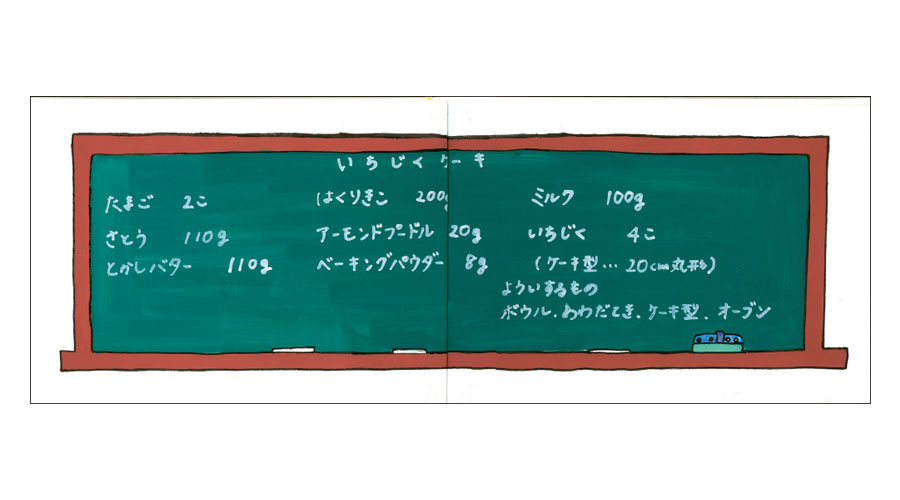 いちじくケーキ
たまご 2こ
さとう 110g
とかしバター 110g
はくりきこ 200g
アーモンドプードル 20g
ベーキングパウダー 8g
ミルク 100g
いちじく 4こ
(ケーキ型…20cm丸形)
よういするもの
ボウル.あわだてき.ケーキ型.オーブン